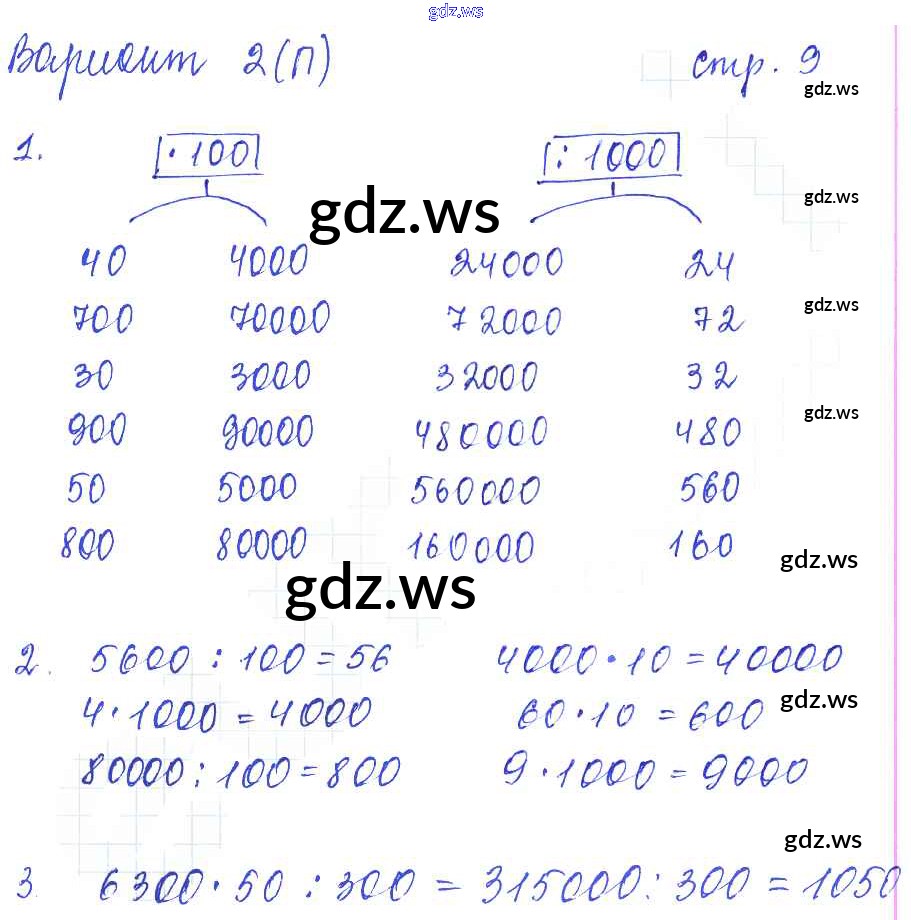 gdz.ws
Вариант 2(П) стр. 9
gdz.ws
1. ·100 : 1000
gdz.ws
gdz.ws
40 4000 24000 24
700 70000 72000 72
gdz.ws
30 3000 32000 32
900 90000 480000 480
gdz.ws
50 5000 560000 560
800 80000 160000 160
gdz.ws
gdz.ws
2. 5600 : 100 = 56 4000 · 10 = 40000
4 · 1000 = 4000 60 · 10 = 600
gdz.ws
80000 : 100 = 800 9 · 1000 = 9000
gdz.ws
3. 6300 · 50 : 300 = 315000 : 300 = 1050